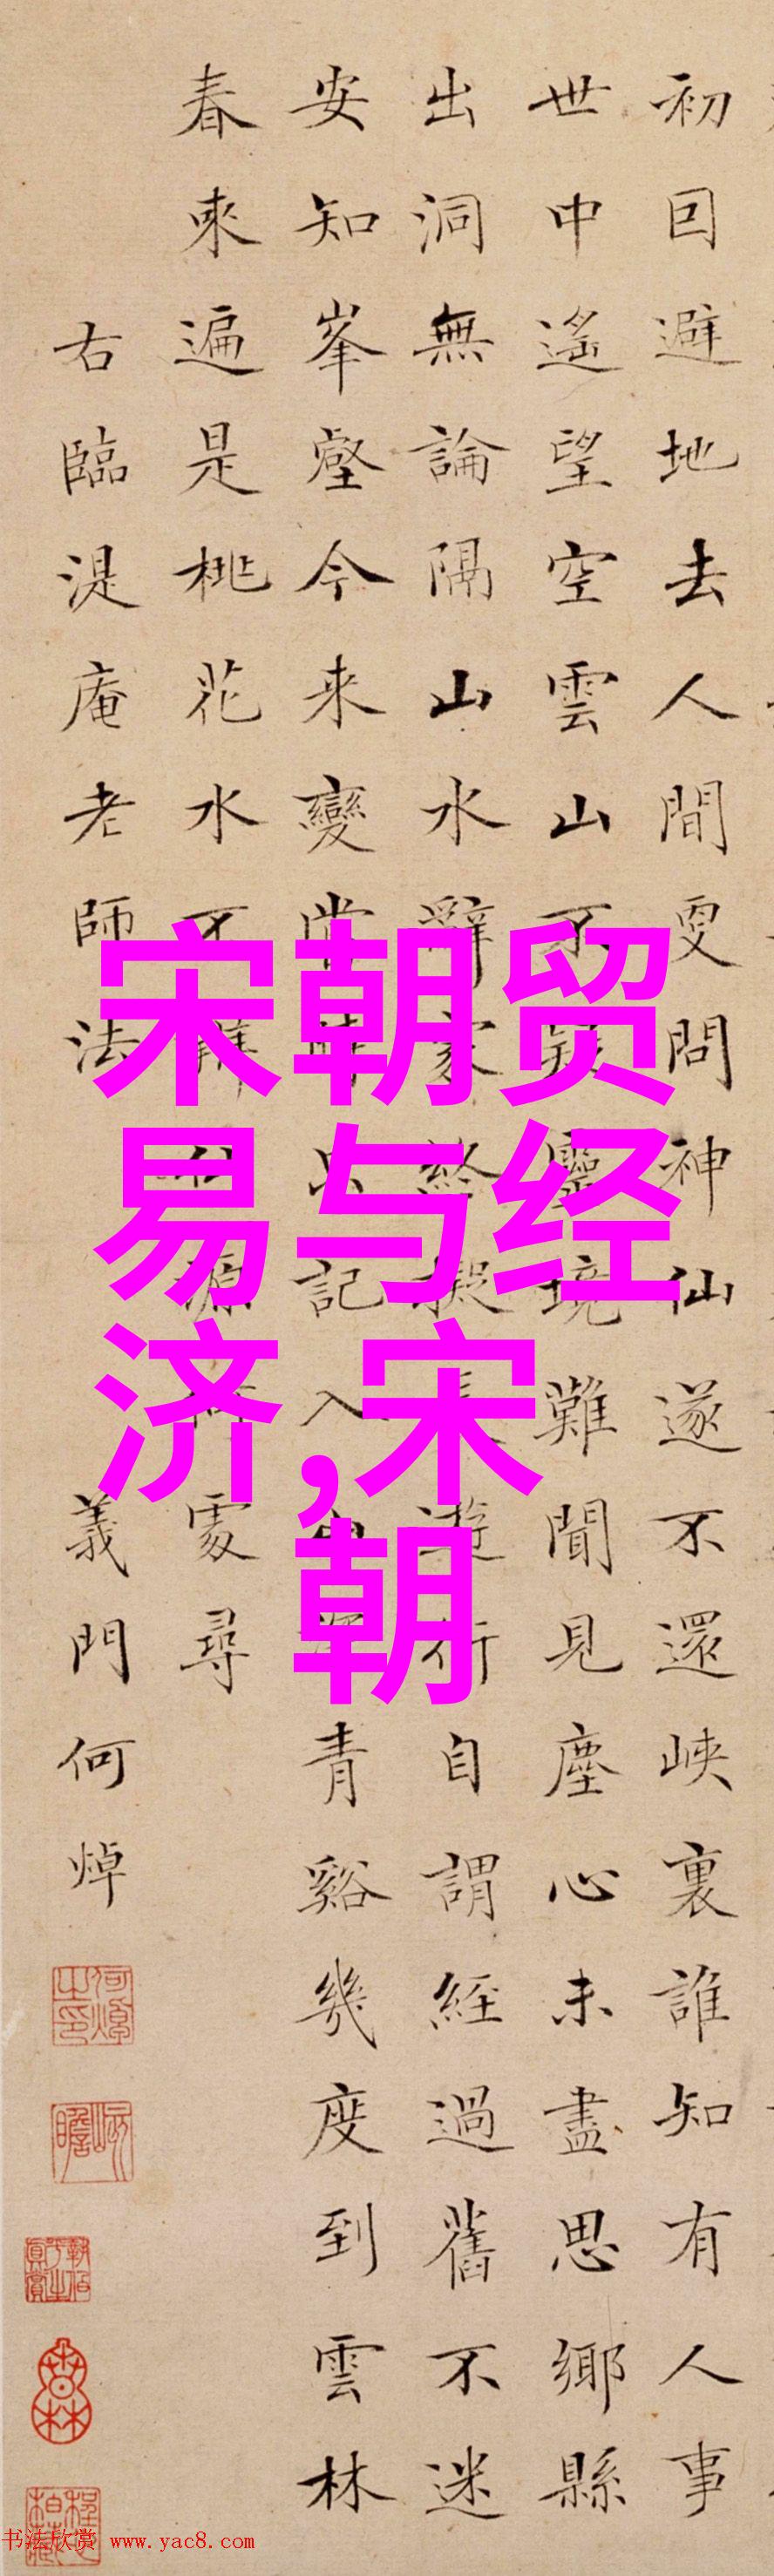 宋朝贸
易与经
济,宋
朝
初囙避地去人間更問神仙遂不還峽裏誰知有人事
世中遙望空雲山不疑靈境難聞見塵心未盡思鄉縣
出洞無論隔山水辭家終擬長遊行自謂經過舊不迷
安知峯壑今来變當時只記入山深青谿幾度到雲林
春來遍是桃花水不辨仙源何處尋
右臨湜庵老師法
義門何焯
书法欣赏 www.yac8.com